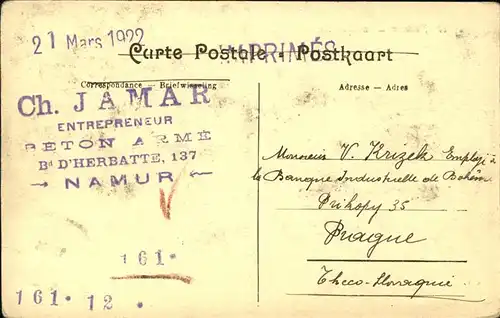 21 Mars 1922
IMPRIMÉS
Carte Postale · Postkaart
Correspondance — Briefwisseling
Adresse — Adres
Ch. JAMAR
ENTREPRENEUR
BETON ARMÉ
Bd D'HERBATTE, 137
NAMUR
161·
161· 12 ·
Monsieur V. Krizek Employé à
la Banque Industrielle de Bohême
Prikopy 35
Prague
Theco-Slovaquie